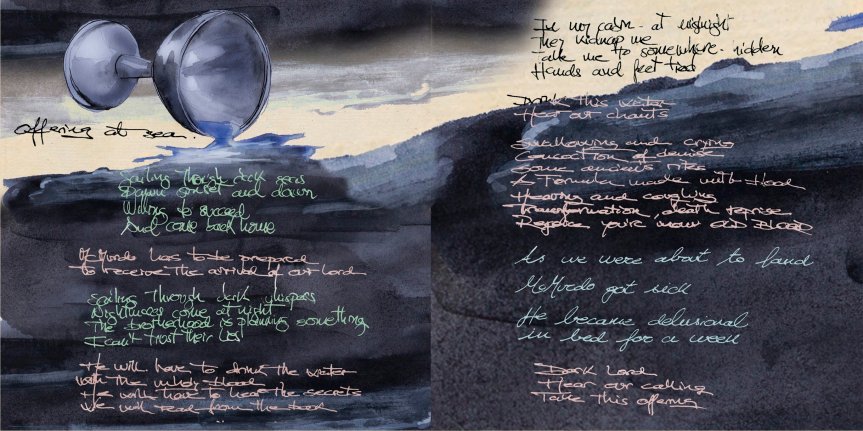 offering at sea.
Sailing through dark seas
Dawn sunset and dawn
Willing to succeed
And come back home
McMurdo has to be prepared
to receive the arrival of our Lord
Sailing through dark whispers
Nightmares come at night
The brotherhood is planning something
I can't trust their
He will have to drink the water
with the
He will have to hear the secrets
We will read from the book
In my cabin at midnight
They kidnap me
Take me to somewhere hidden
Hands and feet tied
Drink this water
Hear our chants
Swallowing and crying
Concoction of demise
Some ancient rites
A formula made with
Heaving and coughing
Transformation, death reprise
Rejoice you're now old BLOOD
As we were about to land
McMurdo got sick
He became delusional
in bed for a week
Dark Lord
Hear our calling
Take this offering